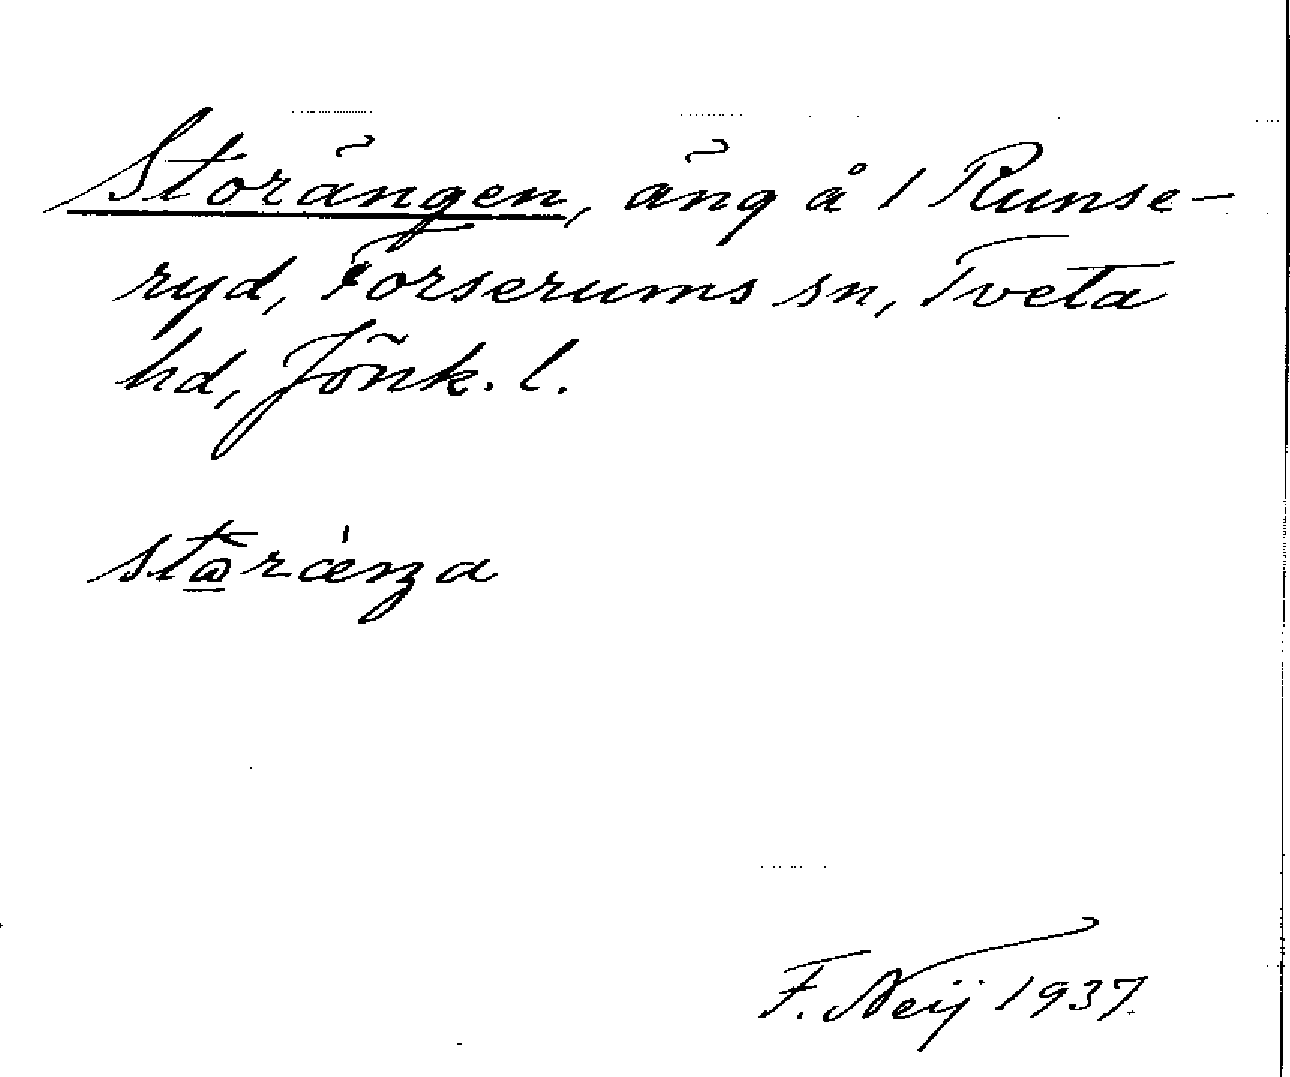 Storängen, äng å 1 Runse-
ryd, Forserums sn, Tveta
hd, Jönk. l.
F. Neij 1937.